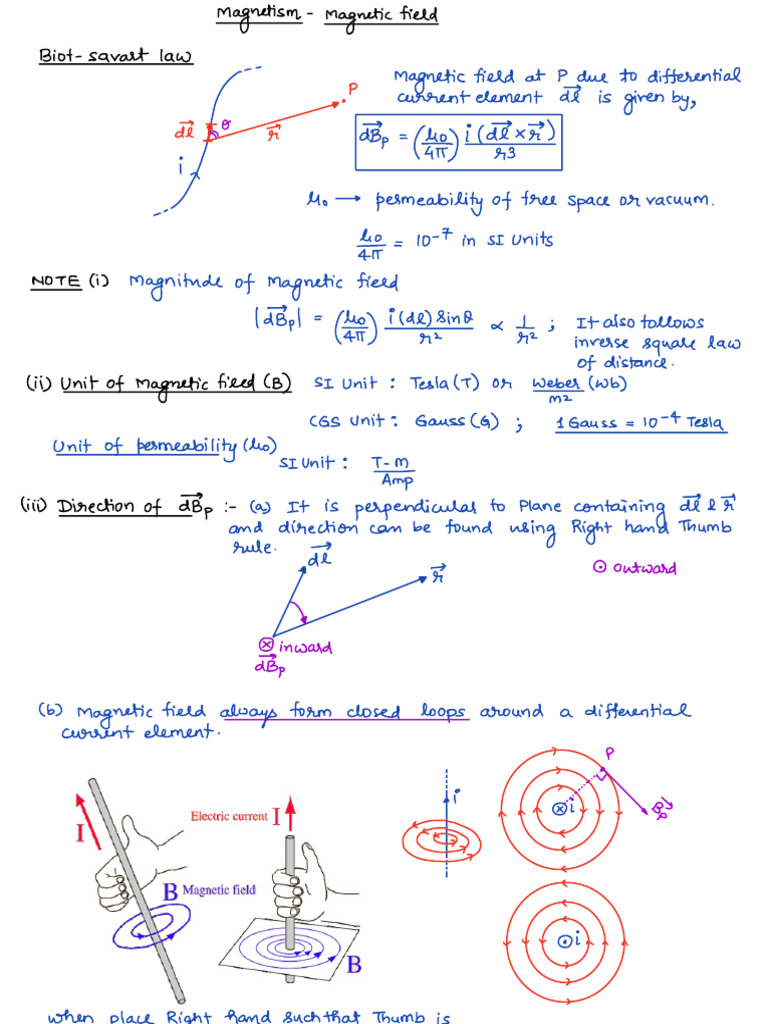 Magnetism - Magnetic field
Biot-savart law
Magnetic field at P due to differential
current element d⃗l is given by,
P
d⃗l θ r⃗
i
d⃗Bₚ = (μ₀/4π) i(d⃗l × r⃗)/r3
μ₀ → permeability of free space or vacuum.
μ₀/4π = 10⁻⁷ in SI Units
NOTE (i) Magnitude of Magnetic field
|d⃗Bₚ| = (μ₀/4π) i(dl) Sinθ/r² ∝ 1/r² ; It also follows
inverse square law
of distance.
(ii) Unit of Magnetic field (B) SI Unit : Tesla (T) or Weber (Wb)/m2
CGS Unit : Gauss (G) ; 1 Gauss = 10⁻⁴ Tesla
Unit of permeability (μ₀)
SI Unit : T-m/Amp
(iii) Direction of d⃗Bₚ :- (a) It is perpendicular to Plane containing d⃗l & r⃗
and direction can be found using Right hand Thumb
rule.
d⃗l
r⃗
⊙ outward
⊗ inward
d⃗Bₚ
(b) Magnetic field always form closed loops around a differential
current element.
P
i
⊗ i
B⃗ₚ
Electric current I
I
B Magnetic field
B
⊙ i
when place Right hand such that Thumb is